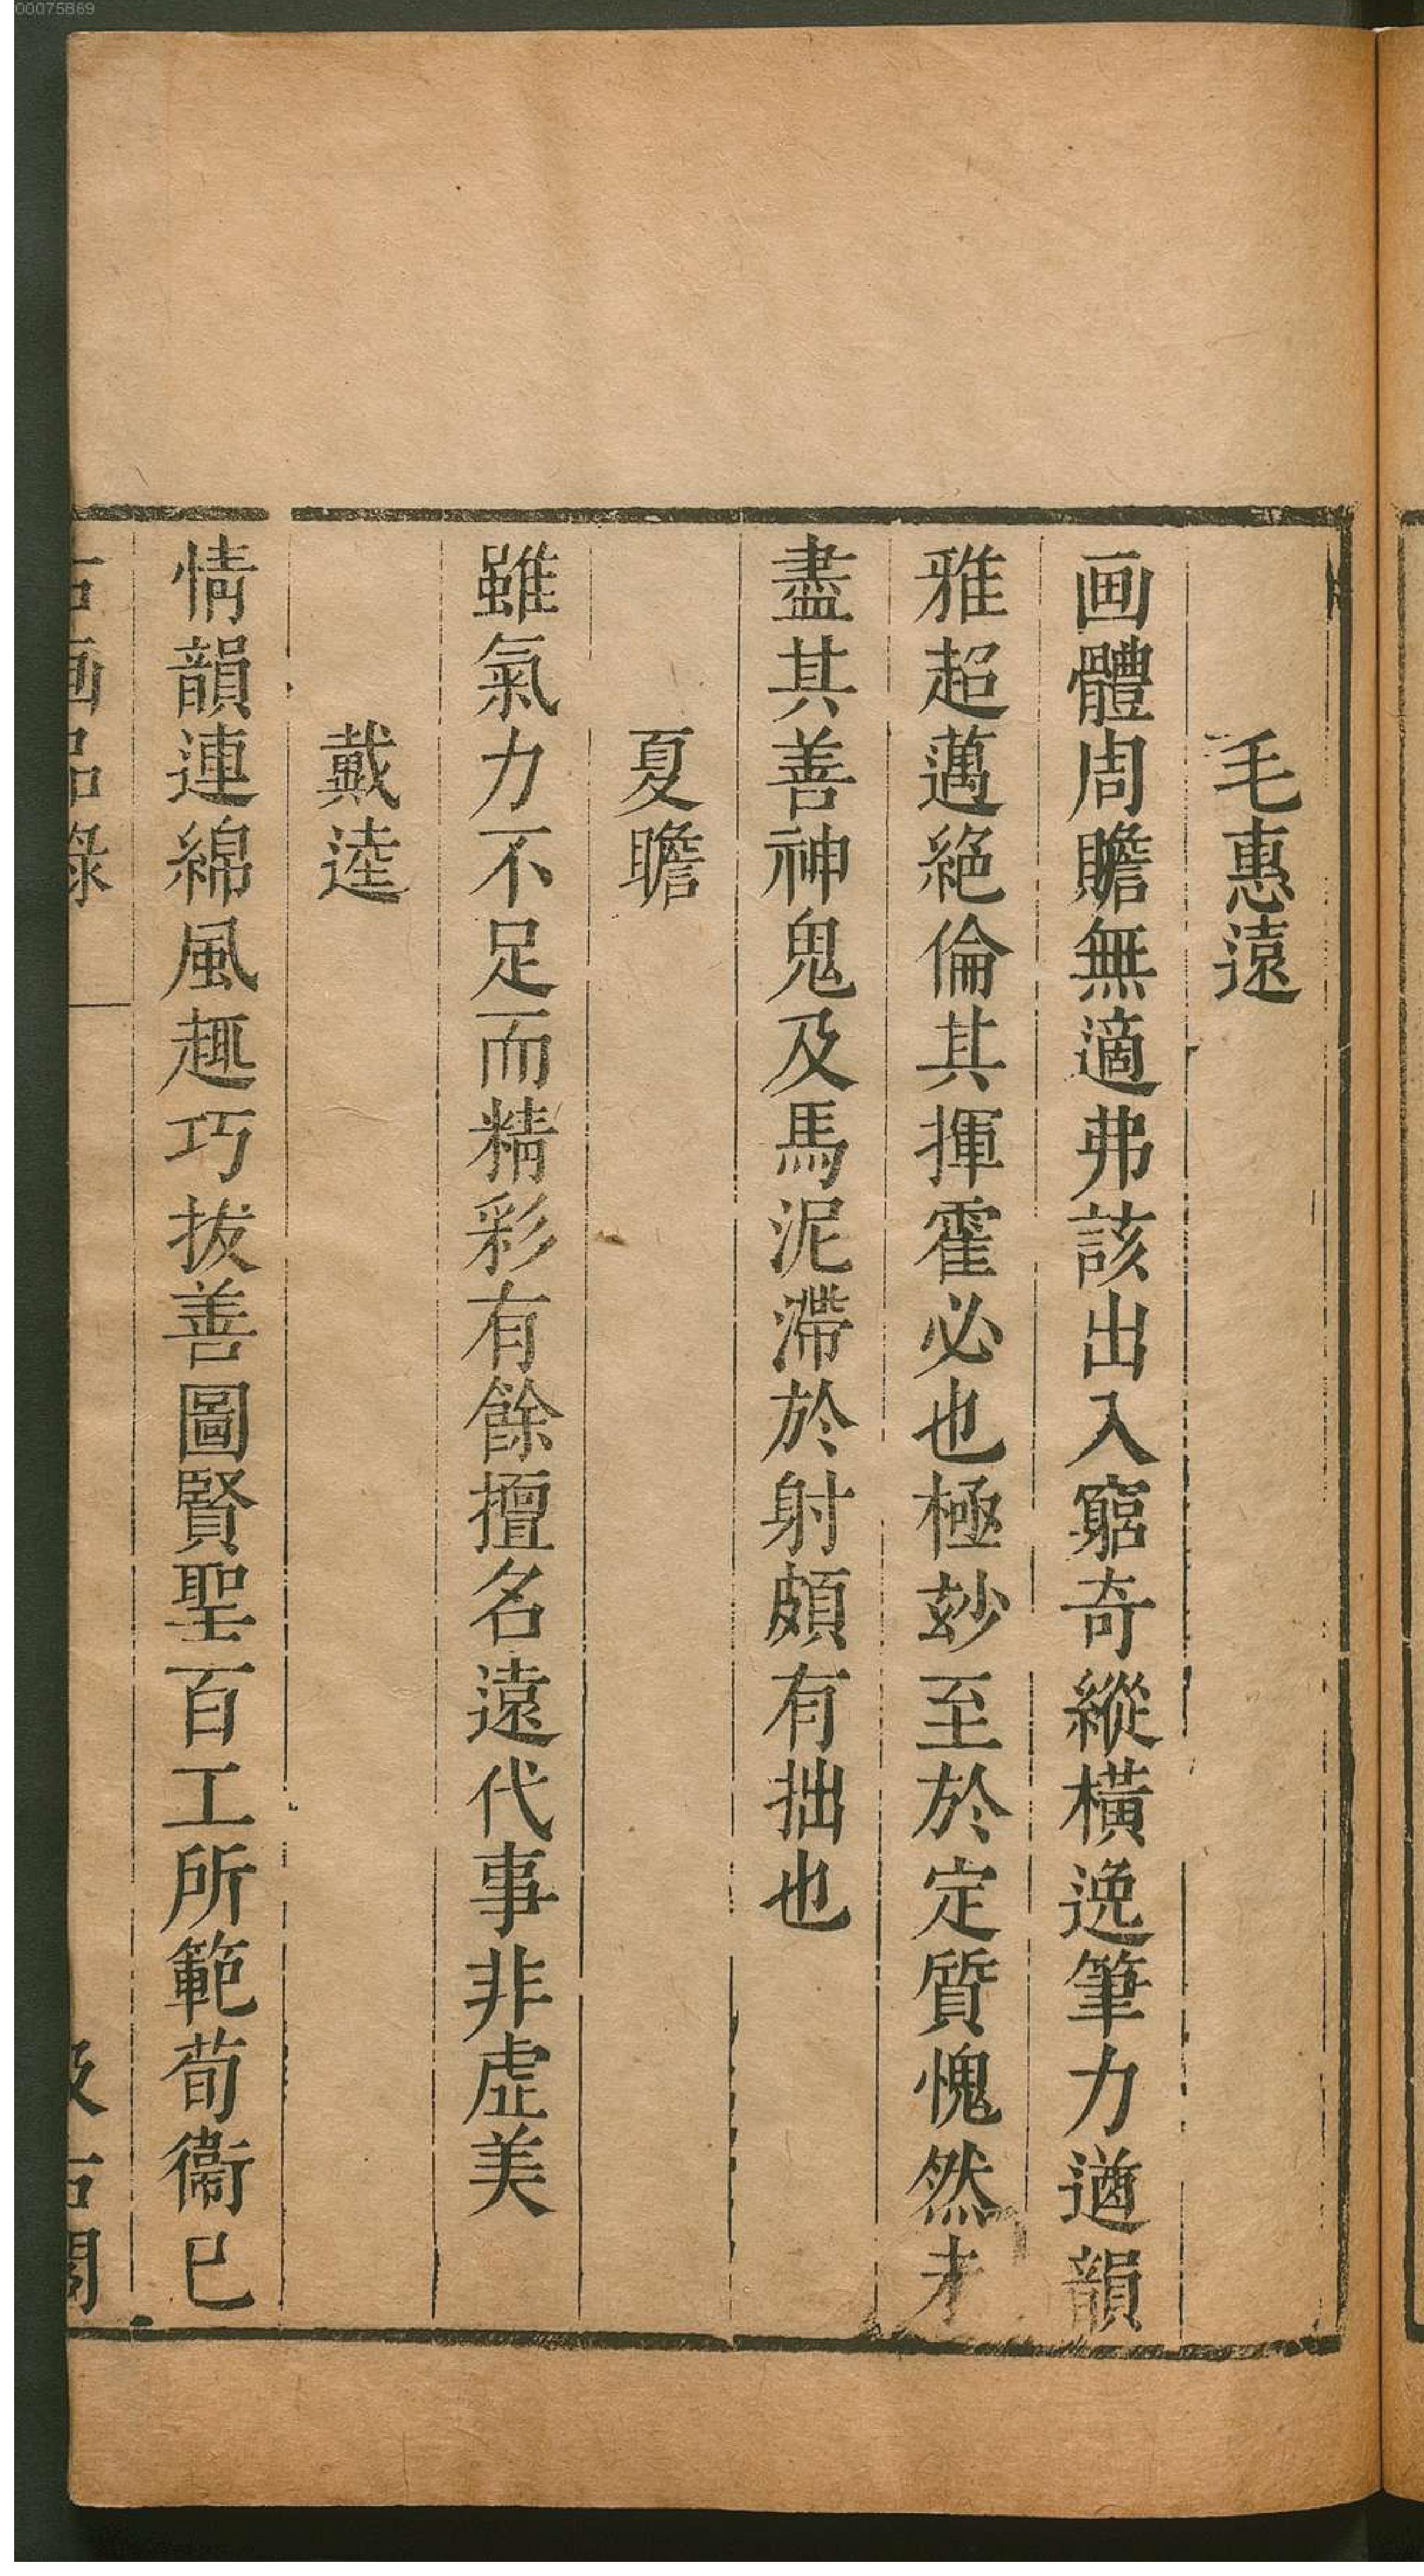 毛惠遠
画體周贍無適弗該出入窮奇縱横逸筆力遒韻
雅超邁絶倫其揮霍必也極玅至於定質愧然才
盡其善神鬼及馬泥滯於射頗有拙也
夏瞻
雖氣力不足而精彩有餘擅名遠代事非虛美
戴逵
情韻連綿風趣巧拔善圖賢聖百工所範荀衞已
古画品錄
汲古閣
00075869